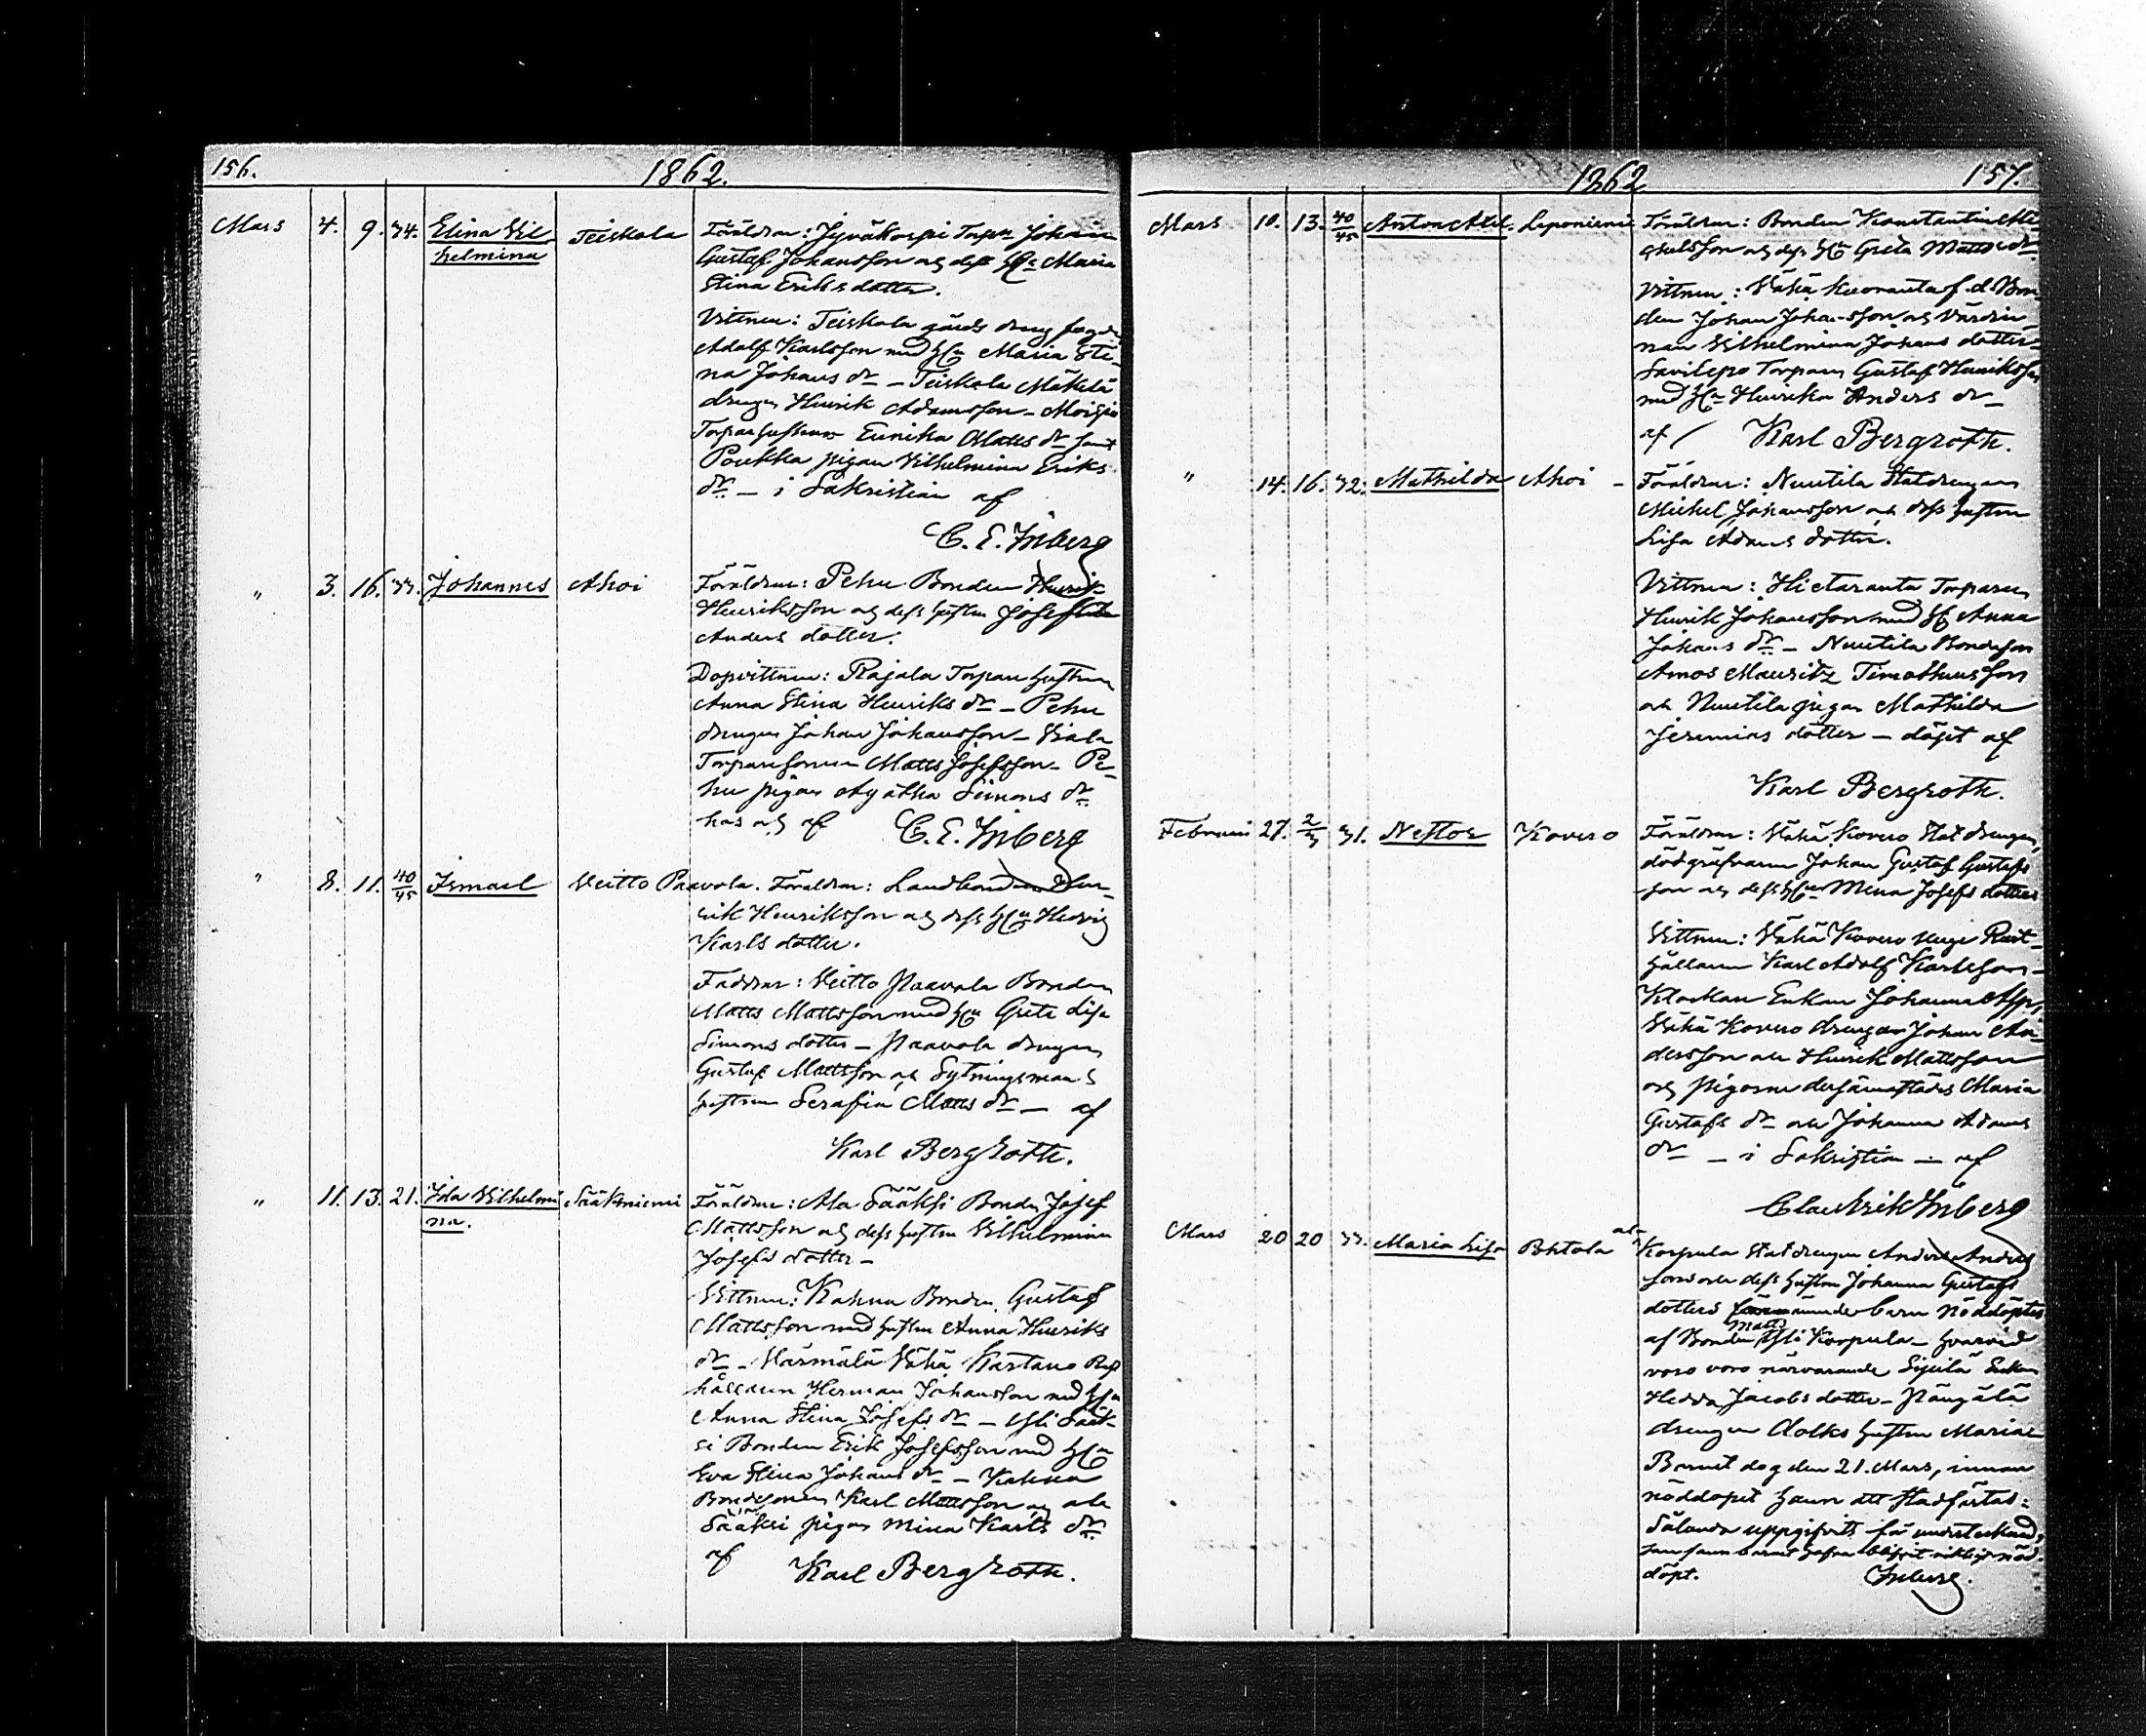 156.
1862.
Mars 4. 9. 34. Elina Vil- Teiskola Föräldrar: Jyväkorpi Torpn Johan
helmina Gustaf Johansson och dess H. Maria
Stina Eriksdotter.
Vittnen: Teiskola gårds dreng
Adolf Karlsson med H. Maria Sti-
na Johans dr – Teiskola Mäkelä
drengen Henrik Adamsson – Moisio
Torpar hustrun Eunika Matts dr samt
Poukka pigan Vilhelmina Eriks
dr – i Sakristian af
C. E. Inberg
" 3. 16. 33. Johannes Ahoi Föräldrar: Pehu Bonden Henrik
Henriksson och dess hustru Josefina
Anders dotter.
Dopvittnen: Rajala Torpare hustrun
Anna Stina Henriks dr – Pehu
drengen Johan Johansson –
Torparesonen Matts Josefsson – Pe-
hu pigan Agatha Simons dr
hos och af C. E. Inberg
" 8. 11. 40/45 Ismael Veitto Paavola. Föräldrar: Landbonden Hen-
rik Henriksson och dess H. Hedvig
Karls dotter.
Faddrar: Veitto Paavola Bonden
Matts Mattsson med H. Greta Lisa
Simons dotter – Paavola drengen
Gustaf Mattsson och Sytningsmans
hustrun Serafia Matts dr – af
Karl Bergroth.
" 11. 13. 21. Ida Vilhelmi Sääksniemi Föräldrar: Ala Sääksi Bonden Josef
na. Mattsson och dess hustru Vilhelmina
Josefs dotter –
Vittnen: Kahna Bonden Gustaf
Mattsson med hustru Anna Henriks
dr – Märmälä Vähä Kartano
hållaren Herman Johansson med H.
Anna Stina Josefs dr – Yli Sääk-
si Bonden Erik Josefsson med H.
Eva Stina Johans dr – Kahna
Bondesonen Karl Mattsson och ala
Sääksi pigan Mina Karls dr
af Karl Bergroth.
1862
157.
Mars 10. 13. 40/45 Anton Axel. Leponiemi Föräldrar: Bonden Konstantin Mi-
chelsson och dess H. Greta Matts dr
Vittnen: Vähä Kuoranta f. d. Bon-
den Johan Johansson och Värdin-
nan Vilhelmina Johans dotter –
Savilepo Torparn Gustaf Henriksson
med H. Henrika Anders dr –
af Karl Bergroth.
" 14. 16. 32. Mathilda Ahoi – Föräldrar: Nuutila Statdrengen
Michel Johansson och dess hustru
Lisa Adams dotter.
Vittnen: Hietaranta Torparen
Henrik Johansson med H. Anna
Johans dr – Nuutila Bondeson
Amos Mauritz Timotheusson
och Nuutila pigan Mathilda
Jeremias dotter – döpt af
Karl Bergroth.
Februari 27. 2/3 31. Nestor Kovero Föräldrar: Vähä Kovero Statdrengen,
dödgräfvaren Johan Gustaf Gustafs
son och dess H. Mina Josefs dotter
Vittnen: Vähä Kovero unge Rust-
hållaren Karl Adolf Karlsson –
Klockar Enkan Johanna
Vähä Kovero drengar Johan An-
dersson och Henrik Mattsson
och pigorna dersammastädes Maria
Gustafs dr och Johanna Adams
dr – i Sakristian – af
Clas Erik Inberg
Mars 20 20 33. Maria Lisa Pohtola
Korpula Statdrengen Anders Anders
sons och dess hustru Johanna Gustafs
dotters barn nöddöptes
Matts
af Bonden Yli Korpula – hvarvid
voro voro närvarande Sipilä Enkan
Hedda Jacobs dotter –
drengen hustru Maria
Barnet dog den 21. Mars, innan
nöddopet hann att stadfästas:
Sålunda uppgifvits för undertecknad,
barnet hafva blifvit riktigt nöd-
döpt. Inberg.